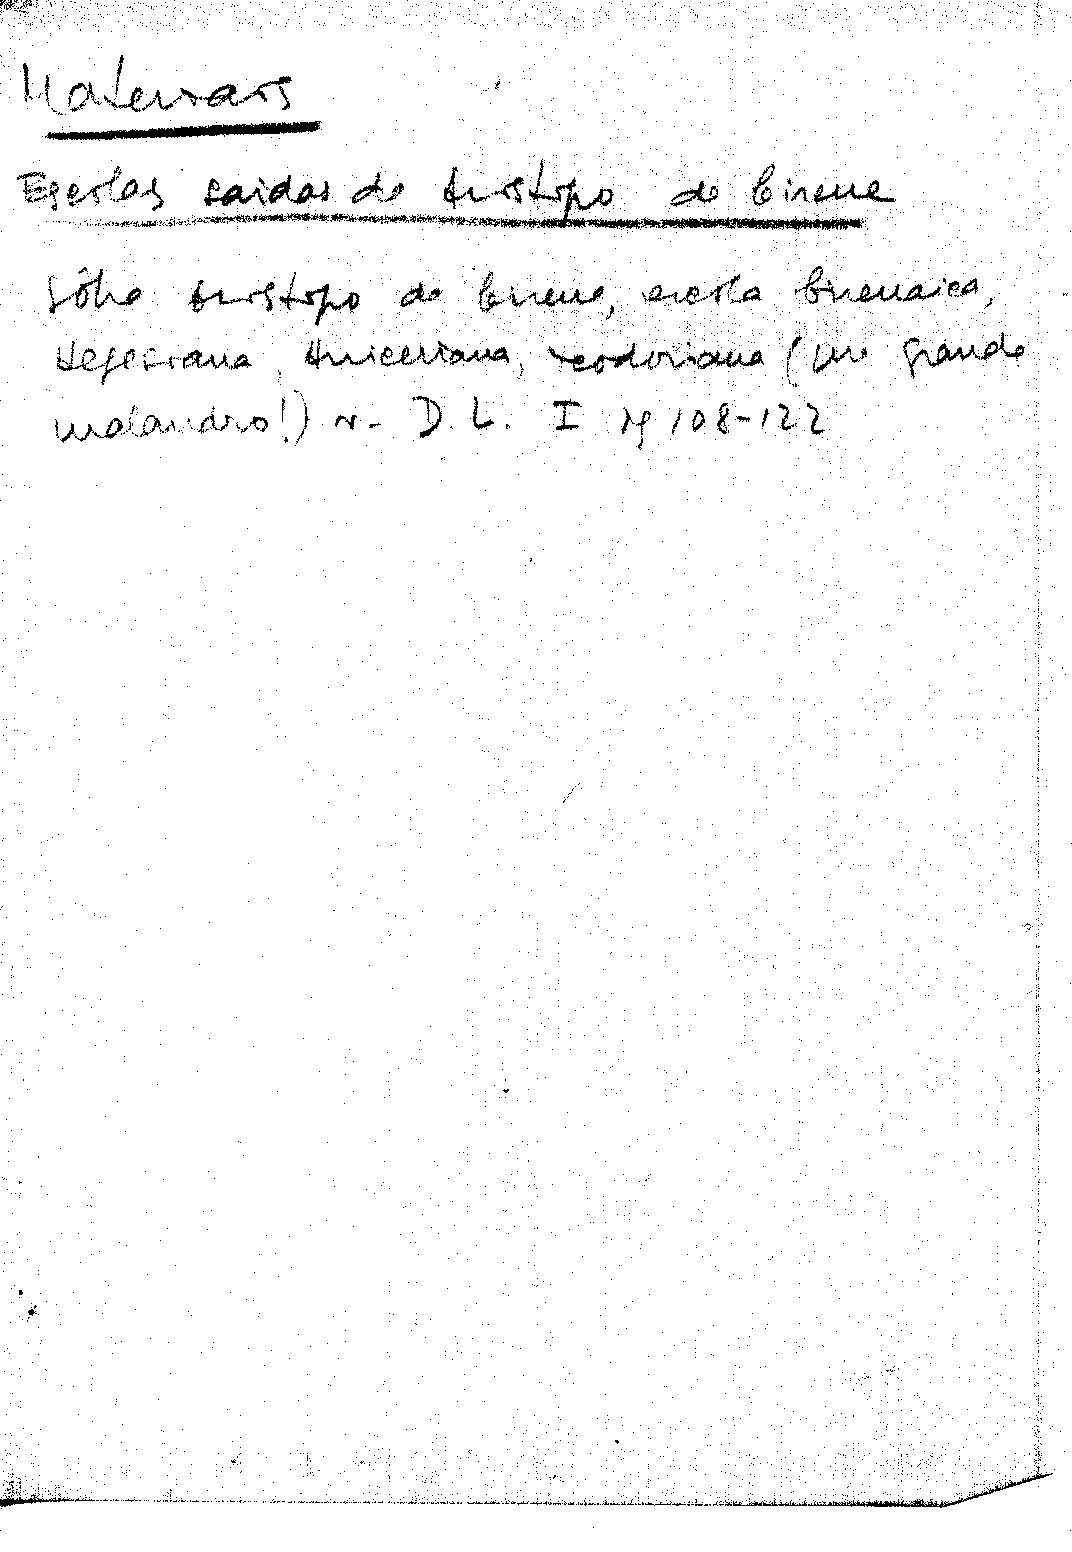 Materiais
Escolas saidas de Aristipo de Cirene
Sôbre Aristipo de Cirene, escola Cirenaica,
Hegesiana, Aniceriana, Teodoriana (um grande
malandro!) v. D. L. I pg 108-122